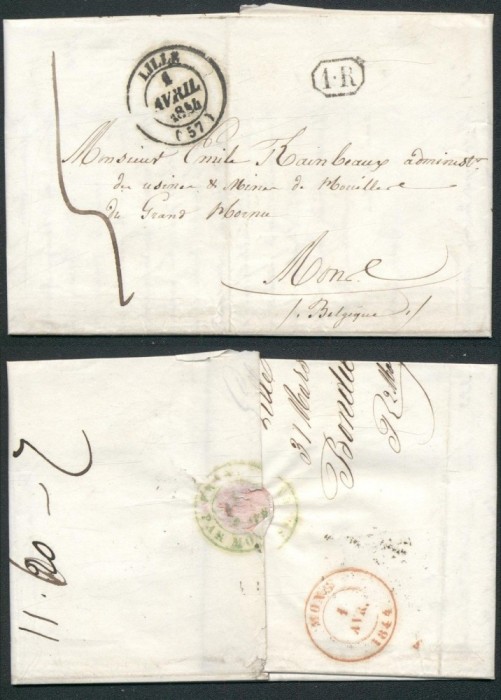 LILLE
1
AVRIL
1844
(57)
1·R
Monsieur Emile Rainbeaux administr
des usines & Mines de Houillere
du Grand Hornu
Mons
/. Belgique ./
Lille
31 Mars
11.60 –
MONS
1
AVR.
1844